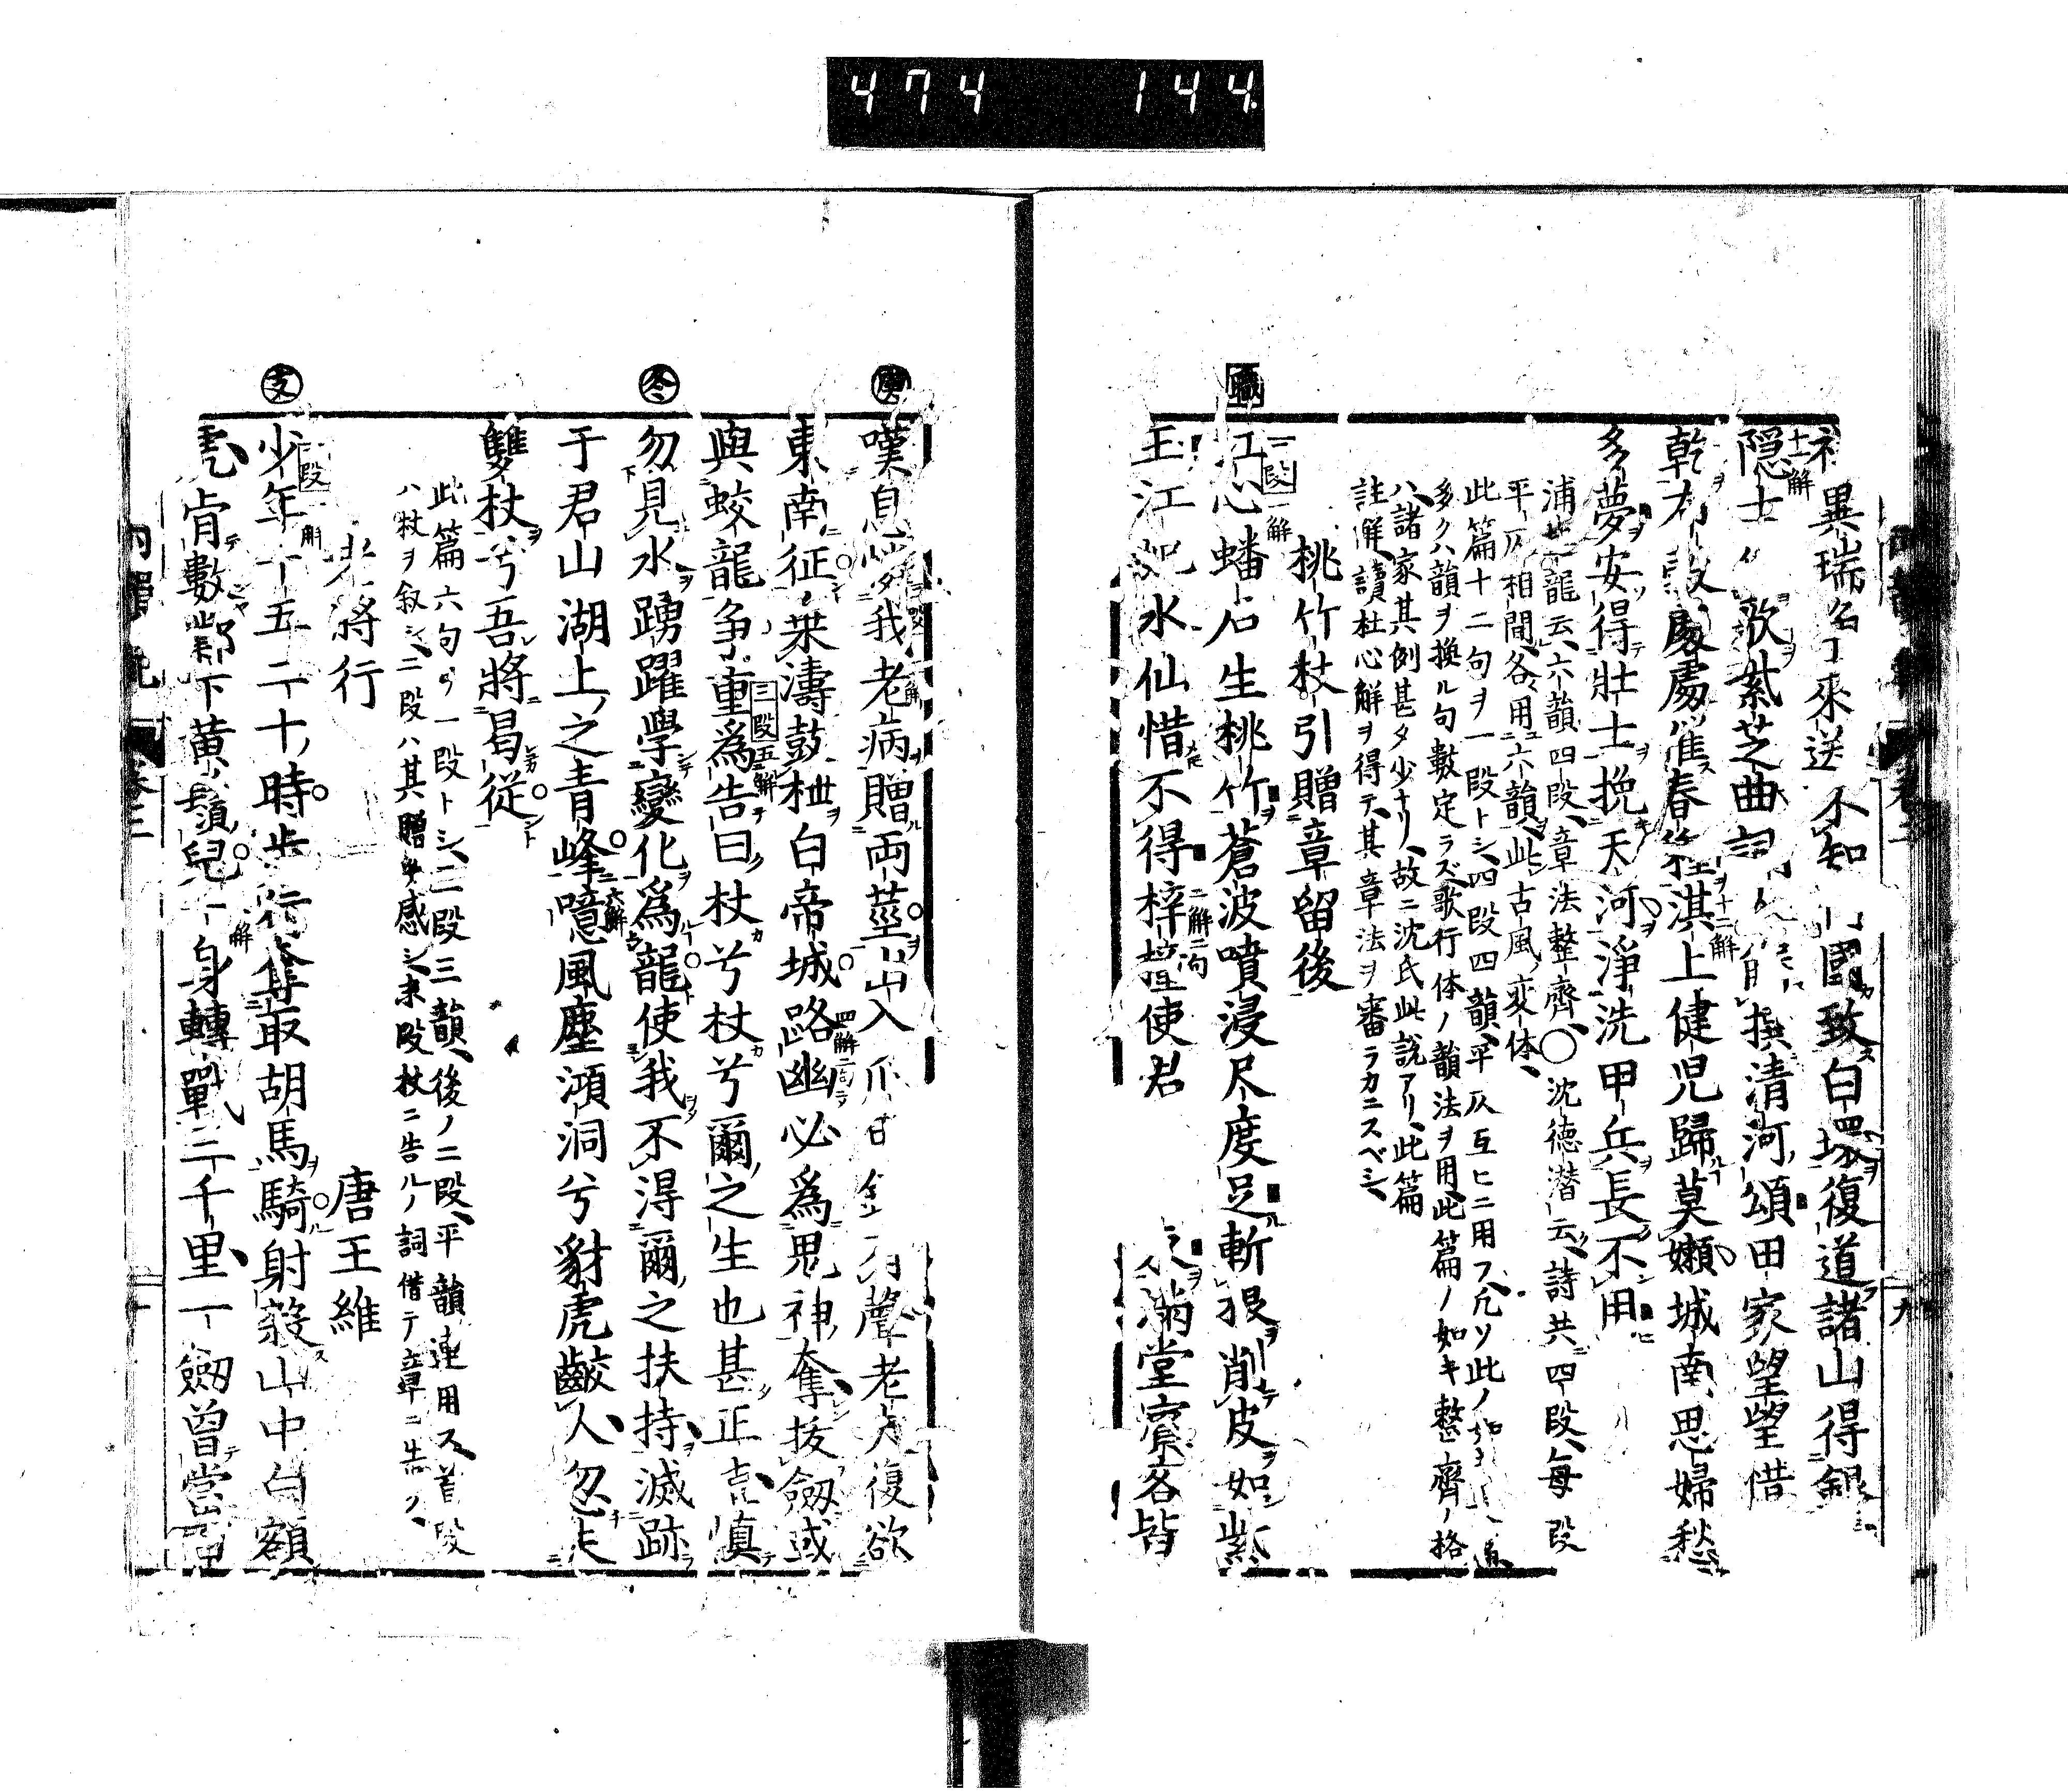 474 144
祥異瑞爭來送不知何國致白環復道諸山得銀
隱士休歌紫芝曲詞人解撰清河頌田家望望惜
乾布穀處處催春種淇上健児歸莫嬾城南思婦愁
多夢安得壯士挽天河淨洗甲兵長不用
浦起龍云六韻四段章法整齊○沈徳潜云詩共四段每段
平仄相間各用六韻此古風変体
此篇十二句ヲ一段トシ四段四韻平仄互ヒニ用フ凡ソ此ノ
多クハ韻ヲ換ル句數定ラズ歌行体ノ韻法ヲ用此篇ノ如キ整齊ノ格
ハ諸家其例甚タ少ナリ故ニ沈氏此説アリ此篇
註解讀杜心解ヲ得テ其章法ヲ審ラカニスベシ
桃竹杖引贈章留後
職
一段一解
江心蟠石生桃竹蒼波噴浸尺度足斬根削皮如紫
玉江妃水仙惜不得梓潼使君
二解二句
滿堂賓客皆
庚
嘆息憐我老病贈両莖出入爪甲有聲老夫復欲
東南征乗濤鼓枻白帝城路幽必為鬼神奪拔劔或
四解二句
與蛟龍爭重為告曰杖兮杖兮爾之生也甚正直慎
三段五解
冬
勿見水踴躍學變化為龍使我不得爾之扶持滅跡
于君山湖上之青峰噫風塵澒洞兮豺虎齩人忽失
六解
雙杖兮吾將曷從
此篇六句ヲ一段トシ二段三韻後ノ二段平韻連用ス首段
ハ杖ヲ叙シ二段ハ其贈ヲ感シ末段杖ニ告ルノ詞借テ章ニ告ク
老將行
唐王維
支
一段一解
少年十五二十時步行奪取胡馬騎射殺山中白額
虎肯數鄴下黄鬚兒一身轉戰三千里一劔曾當百